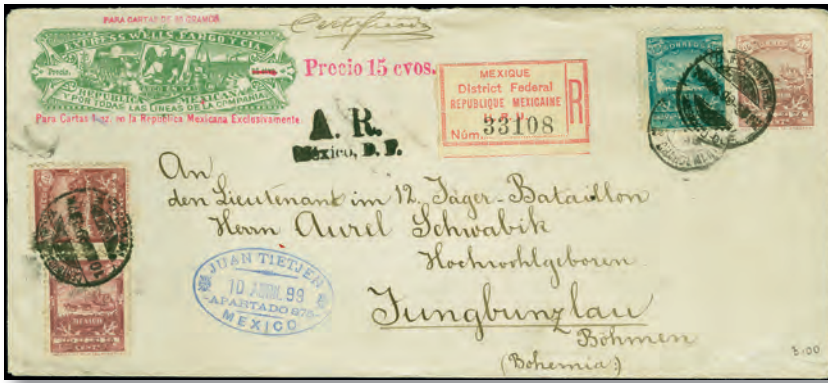 PARA CARTAS DE 30 GRAMOS
EXPRESS WELLS FARGO Y CIA.
Precio.
REPUBLICA MEXICANA
Y POR TODAS LAS LINEAS DE LA COMPAÑIA
Para Cartas 1 oz. en la República Mexicana Exclusivamente
Certificado
Precio 15 cvos.
A. R.
México, D. F.
MEXIQUE
District Federal
REPUBLIQUE MEXICAINE
Núm. 33108
R
CORREOS
MEXICO
An
den Lieutenant im 12. Jäger-Bataillon
Herrn Aurel Schwabik
Hochwohlgeboren
Jungbunzlau
Böhmen
(Bohemia)
JUAN TIETJEN
10 ABRIL 99
APARTADO 875
MEXICO
MEXICO
3.00